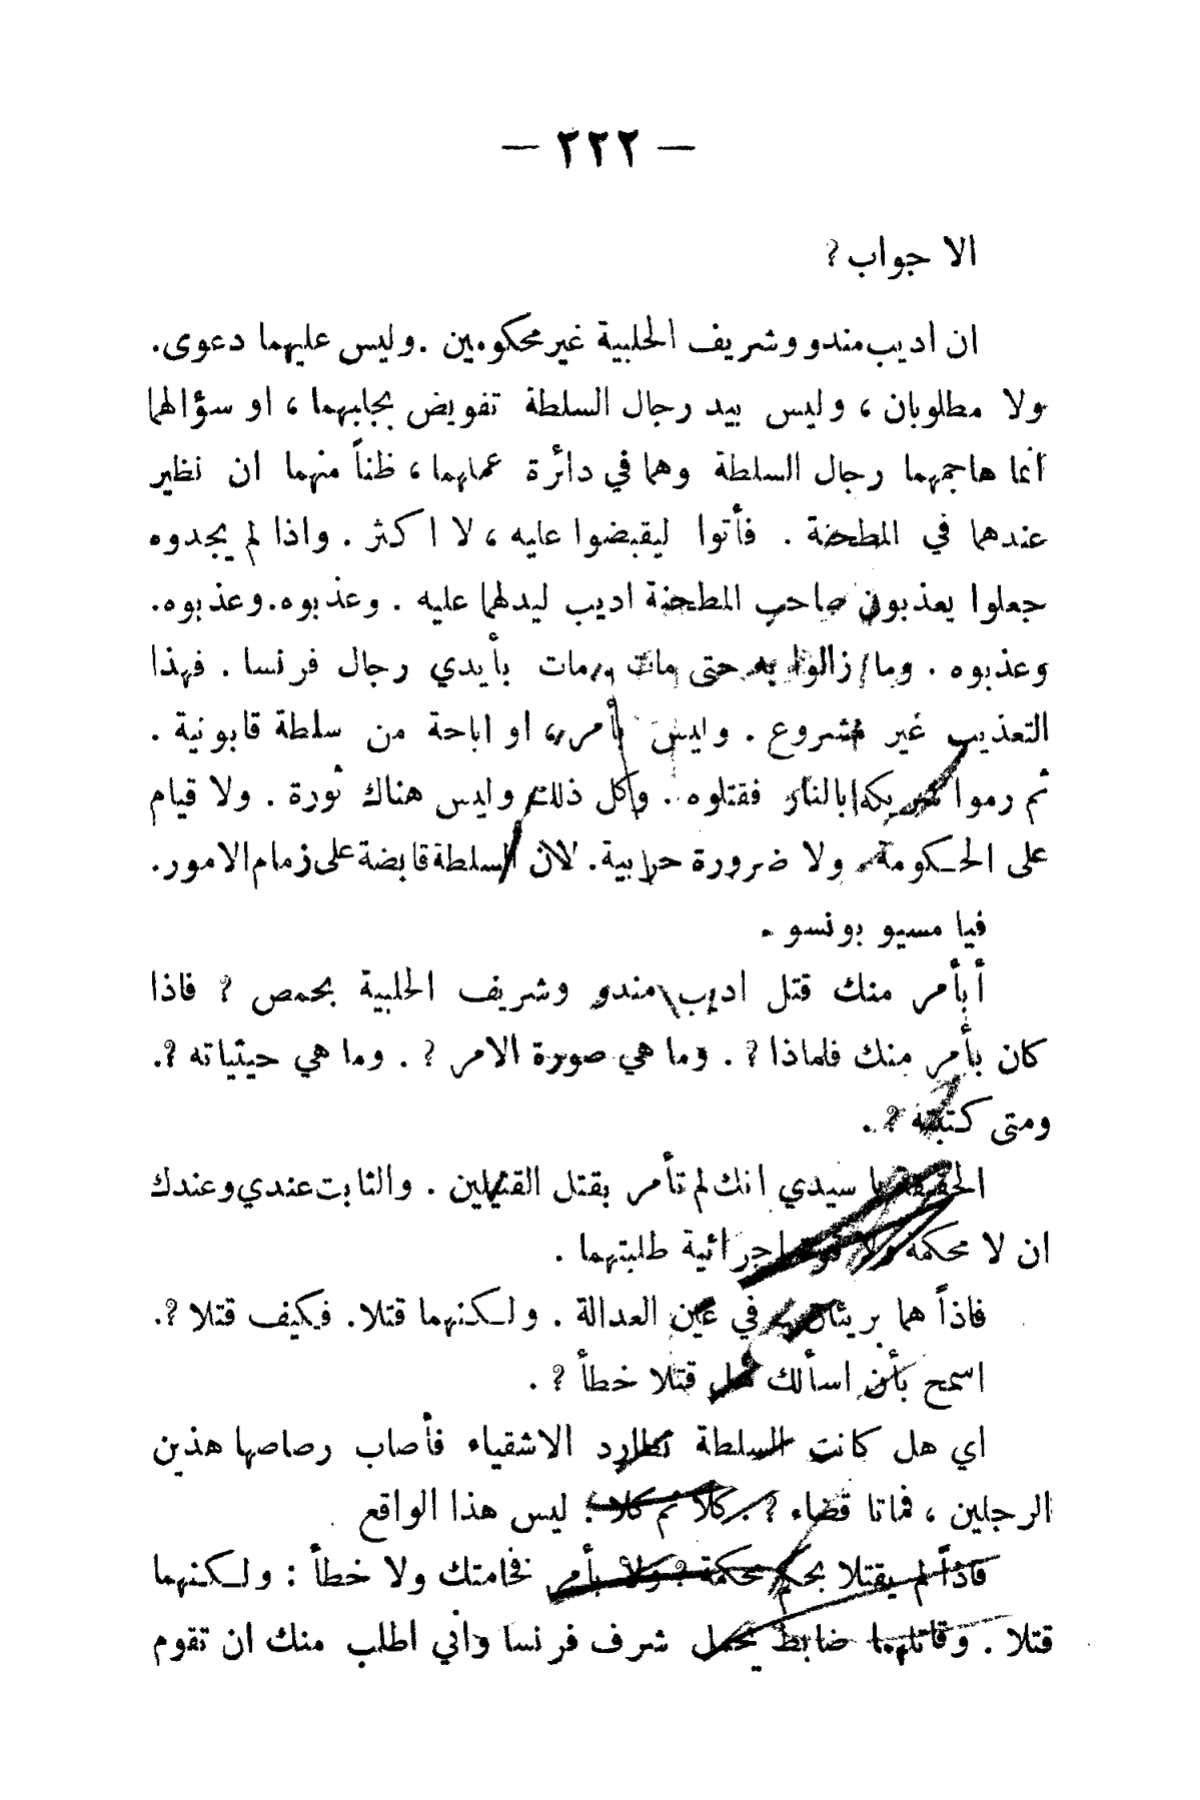 — ٢٢٢ —
الا جواب ?
ان اديب مندو وشريف الحلبية غير محكومين . وليس عليهما دعوى .
ولا مطلوبان ، وليس بيد رجال السلطة تفويض بجلبهما ، او سؤالهما
انما هاجمهما رجال السلطة وهما في دائرة عملهما ، ظناً منهما ان نظير
عندهما في المطحنة . فأتوا ليقبضوا عليه ، لا اكثر . واذا لم يجدوه
جعلوا يعذبون صاحب المطحنة اديب ليدلهما عليه . وعذبوه . وعذبوه .
وعذبوه . وما زالوا به حتى مات . مات بأيدي رجال فرنسا . فهذا
التعذيب غير مشروع . وليس بأمر ، او اباحة من سلطة قانونية .
ثم رموا شريكه بالنار فقتلوه . وكل ذلك وليس هناك ثورة . ولا قيام
على الحكومة ولا ضرورة حرابية . لان السلطة قابضة على زمام الامور .
فيا مسيو بونسو .
أبأمر منك قتل اديب مندو وشريف الحلبية بحمص ? فاذا
كان بأمر منك فلماذا ? . وما هي صورة الامر ? . وما هي حيثياته ? .
ومتى كتبته ? .
الحقيقة يا سيدي انك لم تأمر بقتل القتيلين . والثابت عندي وعندك
ان لا محكمة ولا قوة اجرائية طلبتهما .
فاذاً هما بريئان في عين العدالة . ولكنهما قتلا . فكيف قتلا ? .
اسمح بأن اسألك هل قتلا خطأ ? .
اي هل كانت السلطة تطارد الاشقياء فأصاب رصاصها هذين
الرجلين ، فماتا قضاء ? . كلا ثم كلا . ليس هذا الواقع
فاذاً لم يقتلا بحكم محكمة ? ولا بأمر فخامتك ولا خطأ : ولكنهما
قتلا . وقاتلهما ضابط يحمل شرف فرنسا واني اطلب منك ان تقوم